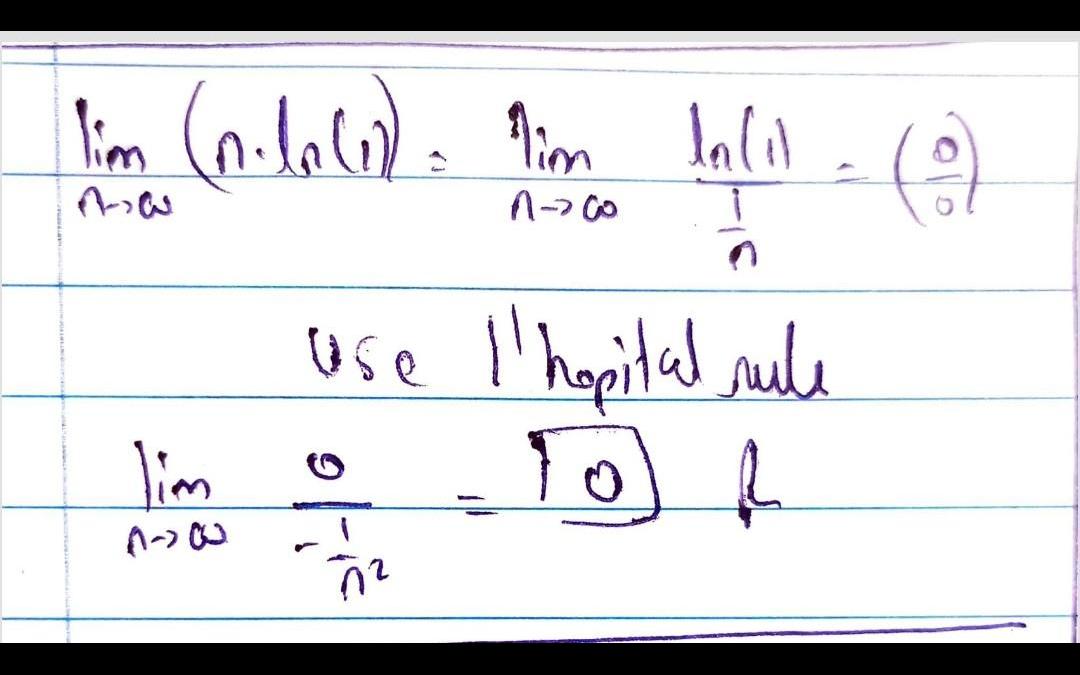 lim n→∞ (n·ln(1)) = lim n→∞ ln(1) / (1/n) = (0/0)
use l'hopital rule
lim n→∞ 0 / (-1/n²) = 0